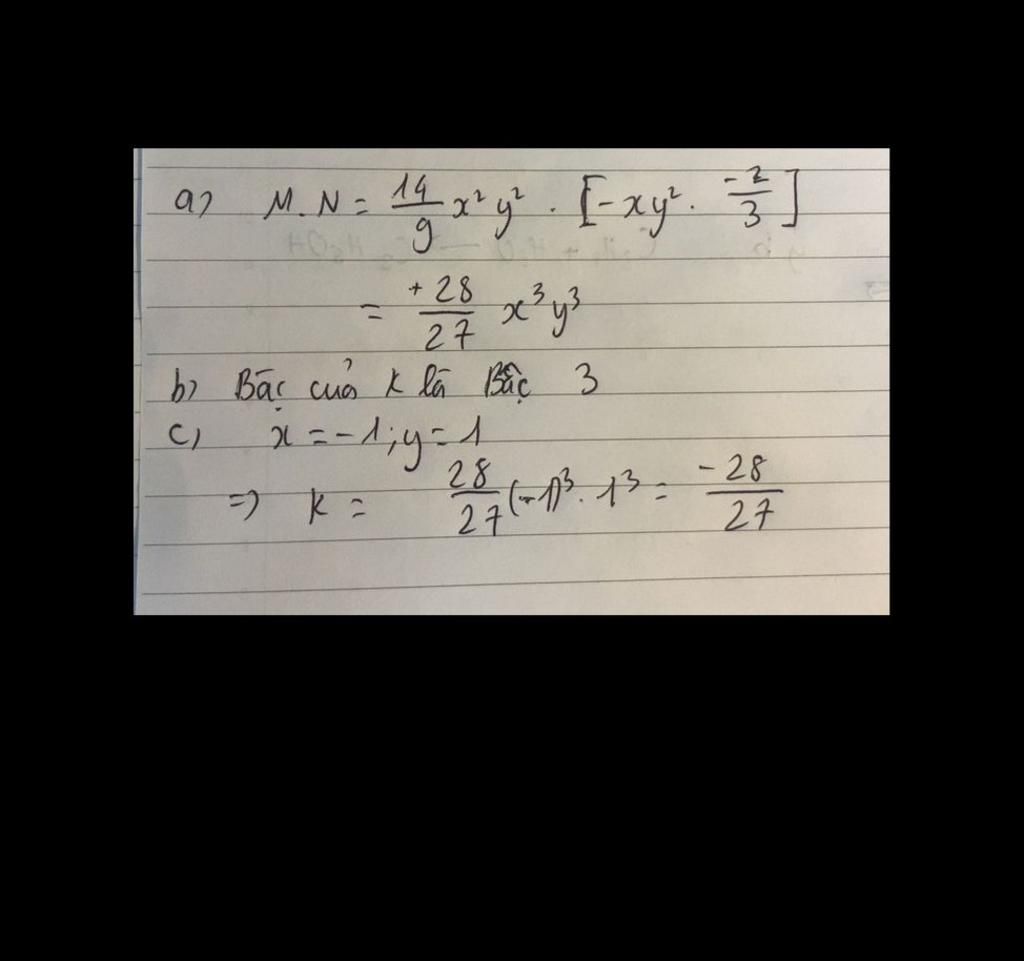 a) M.N = 14/9 x²y² . [-xy² . -2/3]
= +28/27 x³y³
b) Bậc của K là Bậc 3
c) x = -1; y = 1
=> K = 28/27 (-1)³ . 1³ = -28/27